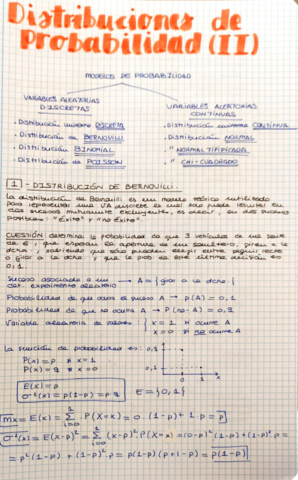 Distribuciones de
Probabilidad (II)
MODELOS DE PROBABILIDAD
VARIABLES ALEATORIAS
DISCRETAS
VARIABLES ALEATORIAS
CONTINUAS
· Distribución uniforme DISCRETA
· Distribución uniforme CONTINUA
· Distribución de BERNOVILLI
· Distribución NORMAL
· Distribución BINOMIAL
· " NORMAL TIPIFICADA
· Distribución de POISSON
· " CHI-CUADRADO
1 - DISTRIBUCIÓN DE BERNOUILLI.
La distribución de Bernouilli es un modelo teórico utilizado
para representar una VA discreta la cual solo puede resultar en
dos sucesos mutuamente excluyentes, es decir, en dos sucesos
posibles: "Éxito" y "no éxito".
CUESTIÓN determina la probabilidad de que 3 vehículos
que esperan la apertura de un semáforo, giren a la
dcha, sabiendo que sólo pueden elegir entre seguir recto
o girar a la dcha. y que la prob de esta última decisión es
0,1.
Suceso asociado a un
det. experimento aleatorio → A = {girar a la dcha.}
Probabilidad de que ocurra el suceso A → p(A) = 0,1
Probabilidad de que no ocurra A → P(no-A) = 0,9
Variable aleatoria de valores: x = 1 si ocurre A
x = 0 si no ocurre A
La función de probabilidad es:
P(x) = p si x = 1
P(x) = q si x = 0
E(x) = p
σ²(x) = p(1-p) = p·q
E = {0,1}
0,9
0,1
0 1 x
mx = E(x) = Σ x · P(X=x) = 0 · (1-p) + 1 · p = p
i=0
σ²(x) = E(X-p)² = Σ (x-p)² · P(X=x) = (0-p)² (1-p) + (1-p)² · p =
i=0
= p²(1-p) + (1-p)² · p = p(1-p)(p+1-p) = p(1-p)